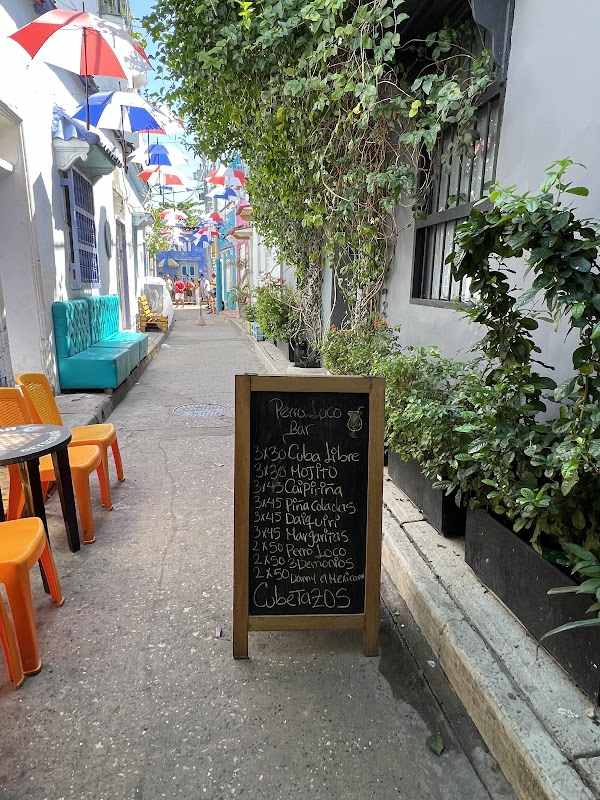 Perro Loco
Bar
3x30 Cuba Libre
3x30 Mojito
3x45 Caipiriña
3x45 Piña coladas
3x45 Daiquiri
3x45 Margaritas
2x50 Perro Loco
2x50 3 Demonios
2x50 Danny el Mexicano
CubeTAZOS